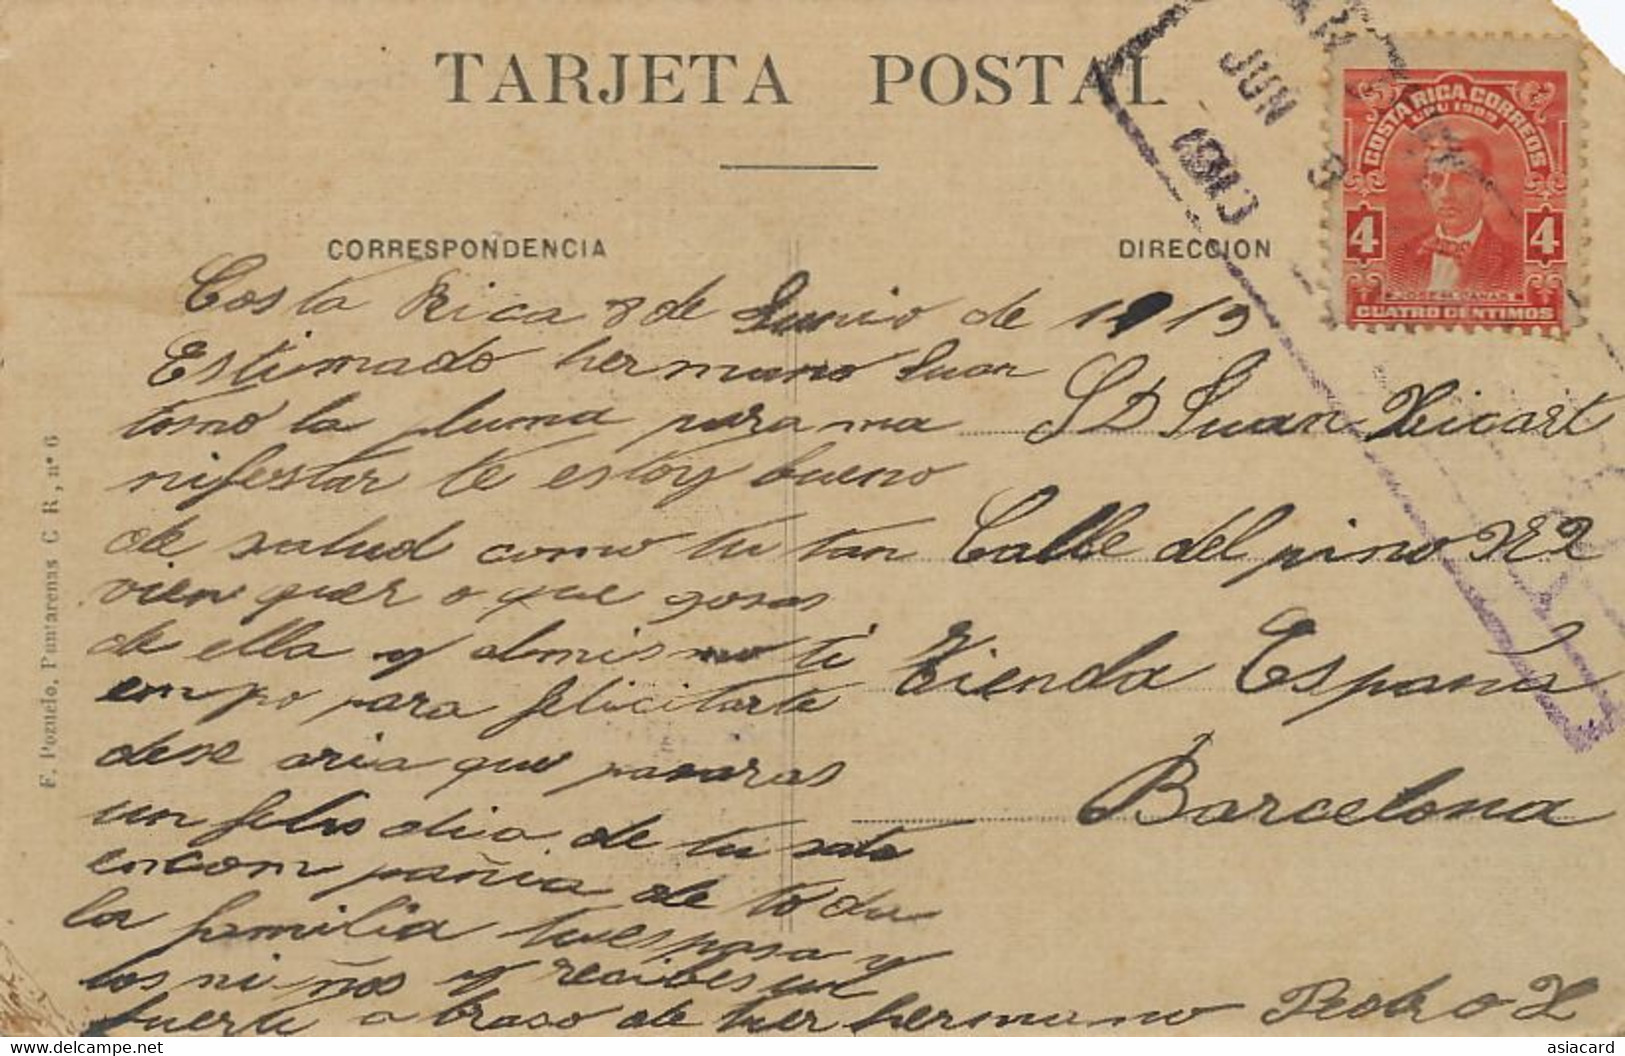 TARJETA POSTAL
CORRESPONDENCIA
DIRECCION
JUN 9
COSTA RICA CORREOS
UPU 1909
4 4
CUATRO CENTIMOS
F. Pozuelo, Puntarenas C R, nº 6
Costa Rica 8 de Junio de 1913
Estimado hermano Juan
tomo la pluma para ma
nifestar te estoy bueno
de salud como tu tan
vien quer o que gosas
de ella y almismo ti
empo para felicitarte
dese aria que pasaras
un felis dia de tu sato
encom pañia de toda
la familia tuesposa y
los ni ños y recibes un
fuerte abraso de tuer hermano Pedro
S D Juan Ricart
Calle del pino Nº 2
Tienda España
Barcelona
asiacard